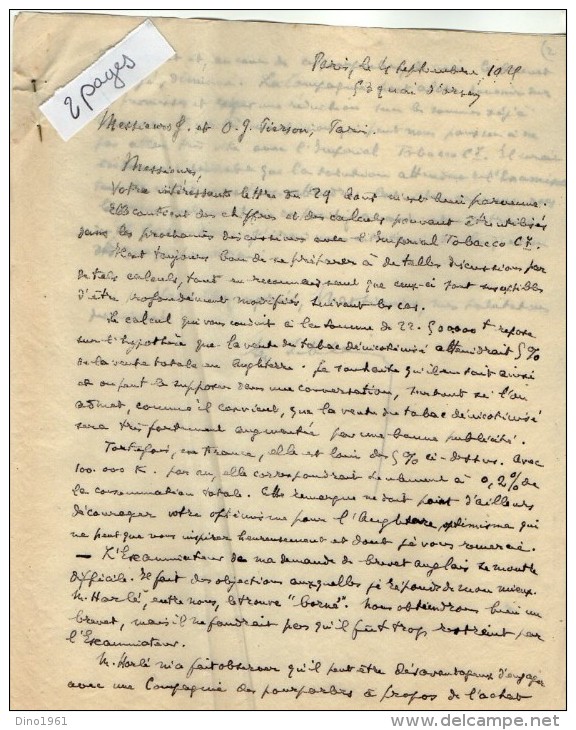 2 pages
(2
Paris, le 4 Septembre 1925
quai d'orsay
Messieurs J. et O. J. Pierson, Paris.
Messieurs,
Votre intéressante lettre du 29 Aout m'est bien parvenue.
Elle contient des chiffres et des calculs pouvant être utilisés
dans les prochaines discussions avec l'Imperial Tobacco Cy.
Il est toujours bon de se préparer à de telles discussions par
de tels calculs, tout en reconnaissant que ceux-ci sont susceptibles
d'être profondément modifiés, suivant les cas.
Le calcul qui vous conduit à la somme de 22.500.000 repose
sur l'hypothèse que la vente du tabac dénicotinisé atteindrait 5%
de la vente totale en Angleterre. Je souhaite qu'il en soit ainsi
et on peut le supposer dans une conversation, surtout si l'on
admet, comme il convient, que la vente du tabac dénicotinisé
sera très fortement augmentée par une bonne publicité.
Toutefois, en France, elle est loin des 5% ci-dessus. Avec
100.000 K. par an, elle correspondrait seulement à 0,2% de
la consommation totale. Cette remarque ne doit point d'ailleurs
décourager votre optimisme pour l'Angleterre, optimisme qui
ne peut que nous inspirer heureusement et dont je vous remercie.
— L'Examinateur de ma demande de brevet anglais se montre
difficile. Il fait des objections auxquelles je réponds de mon mieux.
M. Harlé, entre nous, le trouve "borné". Nous obtiendrons bien un
brevet, mais il ne faudrait pas qu'il fût trop restreint par
l'Examinateur.
M. Harlé m'a fait observer qu'il peut être désavantageux d'engager
avec une Compagnie des pourparlers à propos de l'achat
Dino1961
delcampe.net